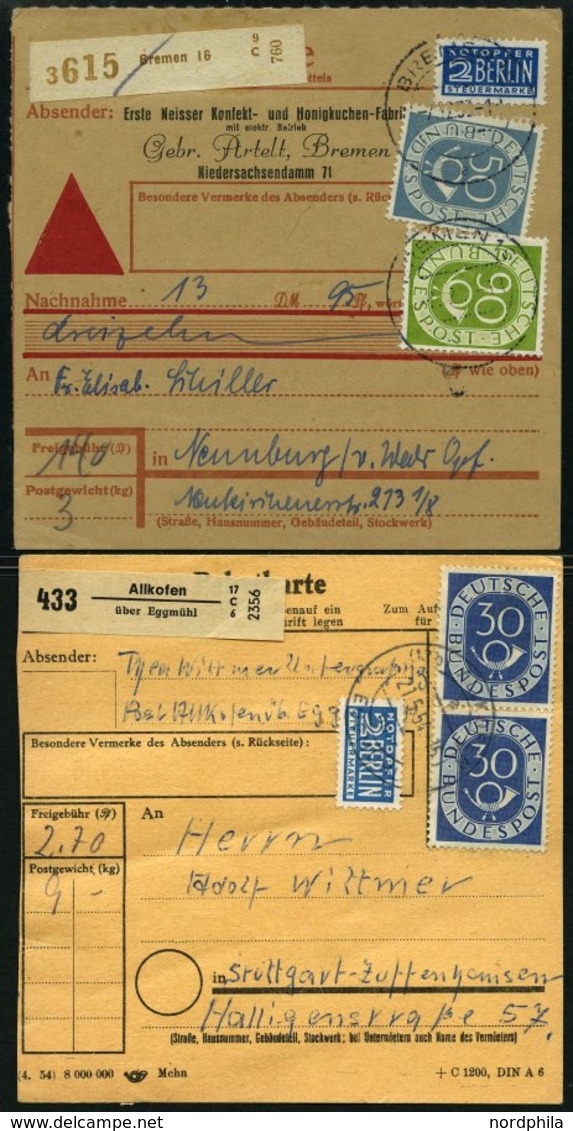 3615
Bremen 16
9
C
760
NOTOPFER
2 BERLIN
STEUERMARKE
Absender:
Erste Neisser Konfekt- und Honigkuchen-Fabri
mit elektr. Betrieb
Gebr. Artelt, Bremen
Niedersachsendamm 71
Besondere Vermerke des Absenders (s. Rück
50
DEUTSCHE BUNDESPOST
90
DEUTSCHE BUNDESPOST
Nachnahme 13 DM 95 Pf,
dreizehn
An Fr. Elisab. Schiller
wie oben)
Freigebühr (₰)
140
in Neunburg/v. Wald Opf.
Postgewicht (kg)
3
Neukirchenerstr. 213 1/8
(Straße, Hausnummer, Gebäudeteil, Stockwerk)
433
Allkofen
über Eggmühl
17
C
6
2356
karte
enauf ein
rift legen
Zum Auf
für
DEUTSCHE BUNDESPOST
30
Absender:
Besondere Vermerke des Absenders (s. Rückseite):
NOTOPFER
2 BERLIN
STEUERMARKE
DEUTSCHE BUNDESPOST
30
Freigebühr (₰)
2.70
An
Herrn
Postgewicht (kg)
9 -
Adolf Wittmer
in Stuttgart-Zuffenhausen
Halligenstraße 57.
(Straße, Hausnummer, Gebäudeteil, Stockwerk; bei Untermietern auch Name des Vermieters)
(4. 54) 8 000 000 Mehn
+ C 1200, DIN A 6
nordphila